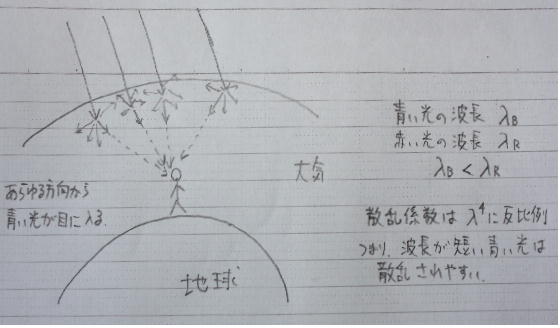 青い光の波長 λB
赤い光の波長 λR
λB < λR
大気
あらゆる方向から
青い光が目に入る.
散乱係数は λ⁴に反比例
つまり、波長が短い青い光は
散乱されやすい.
地球